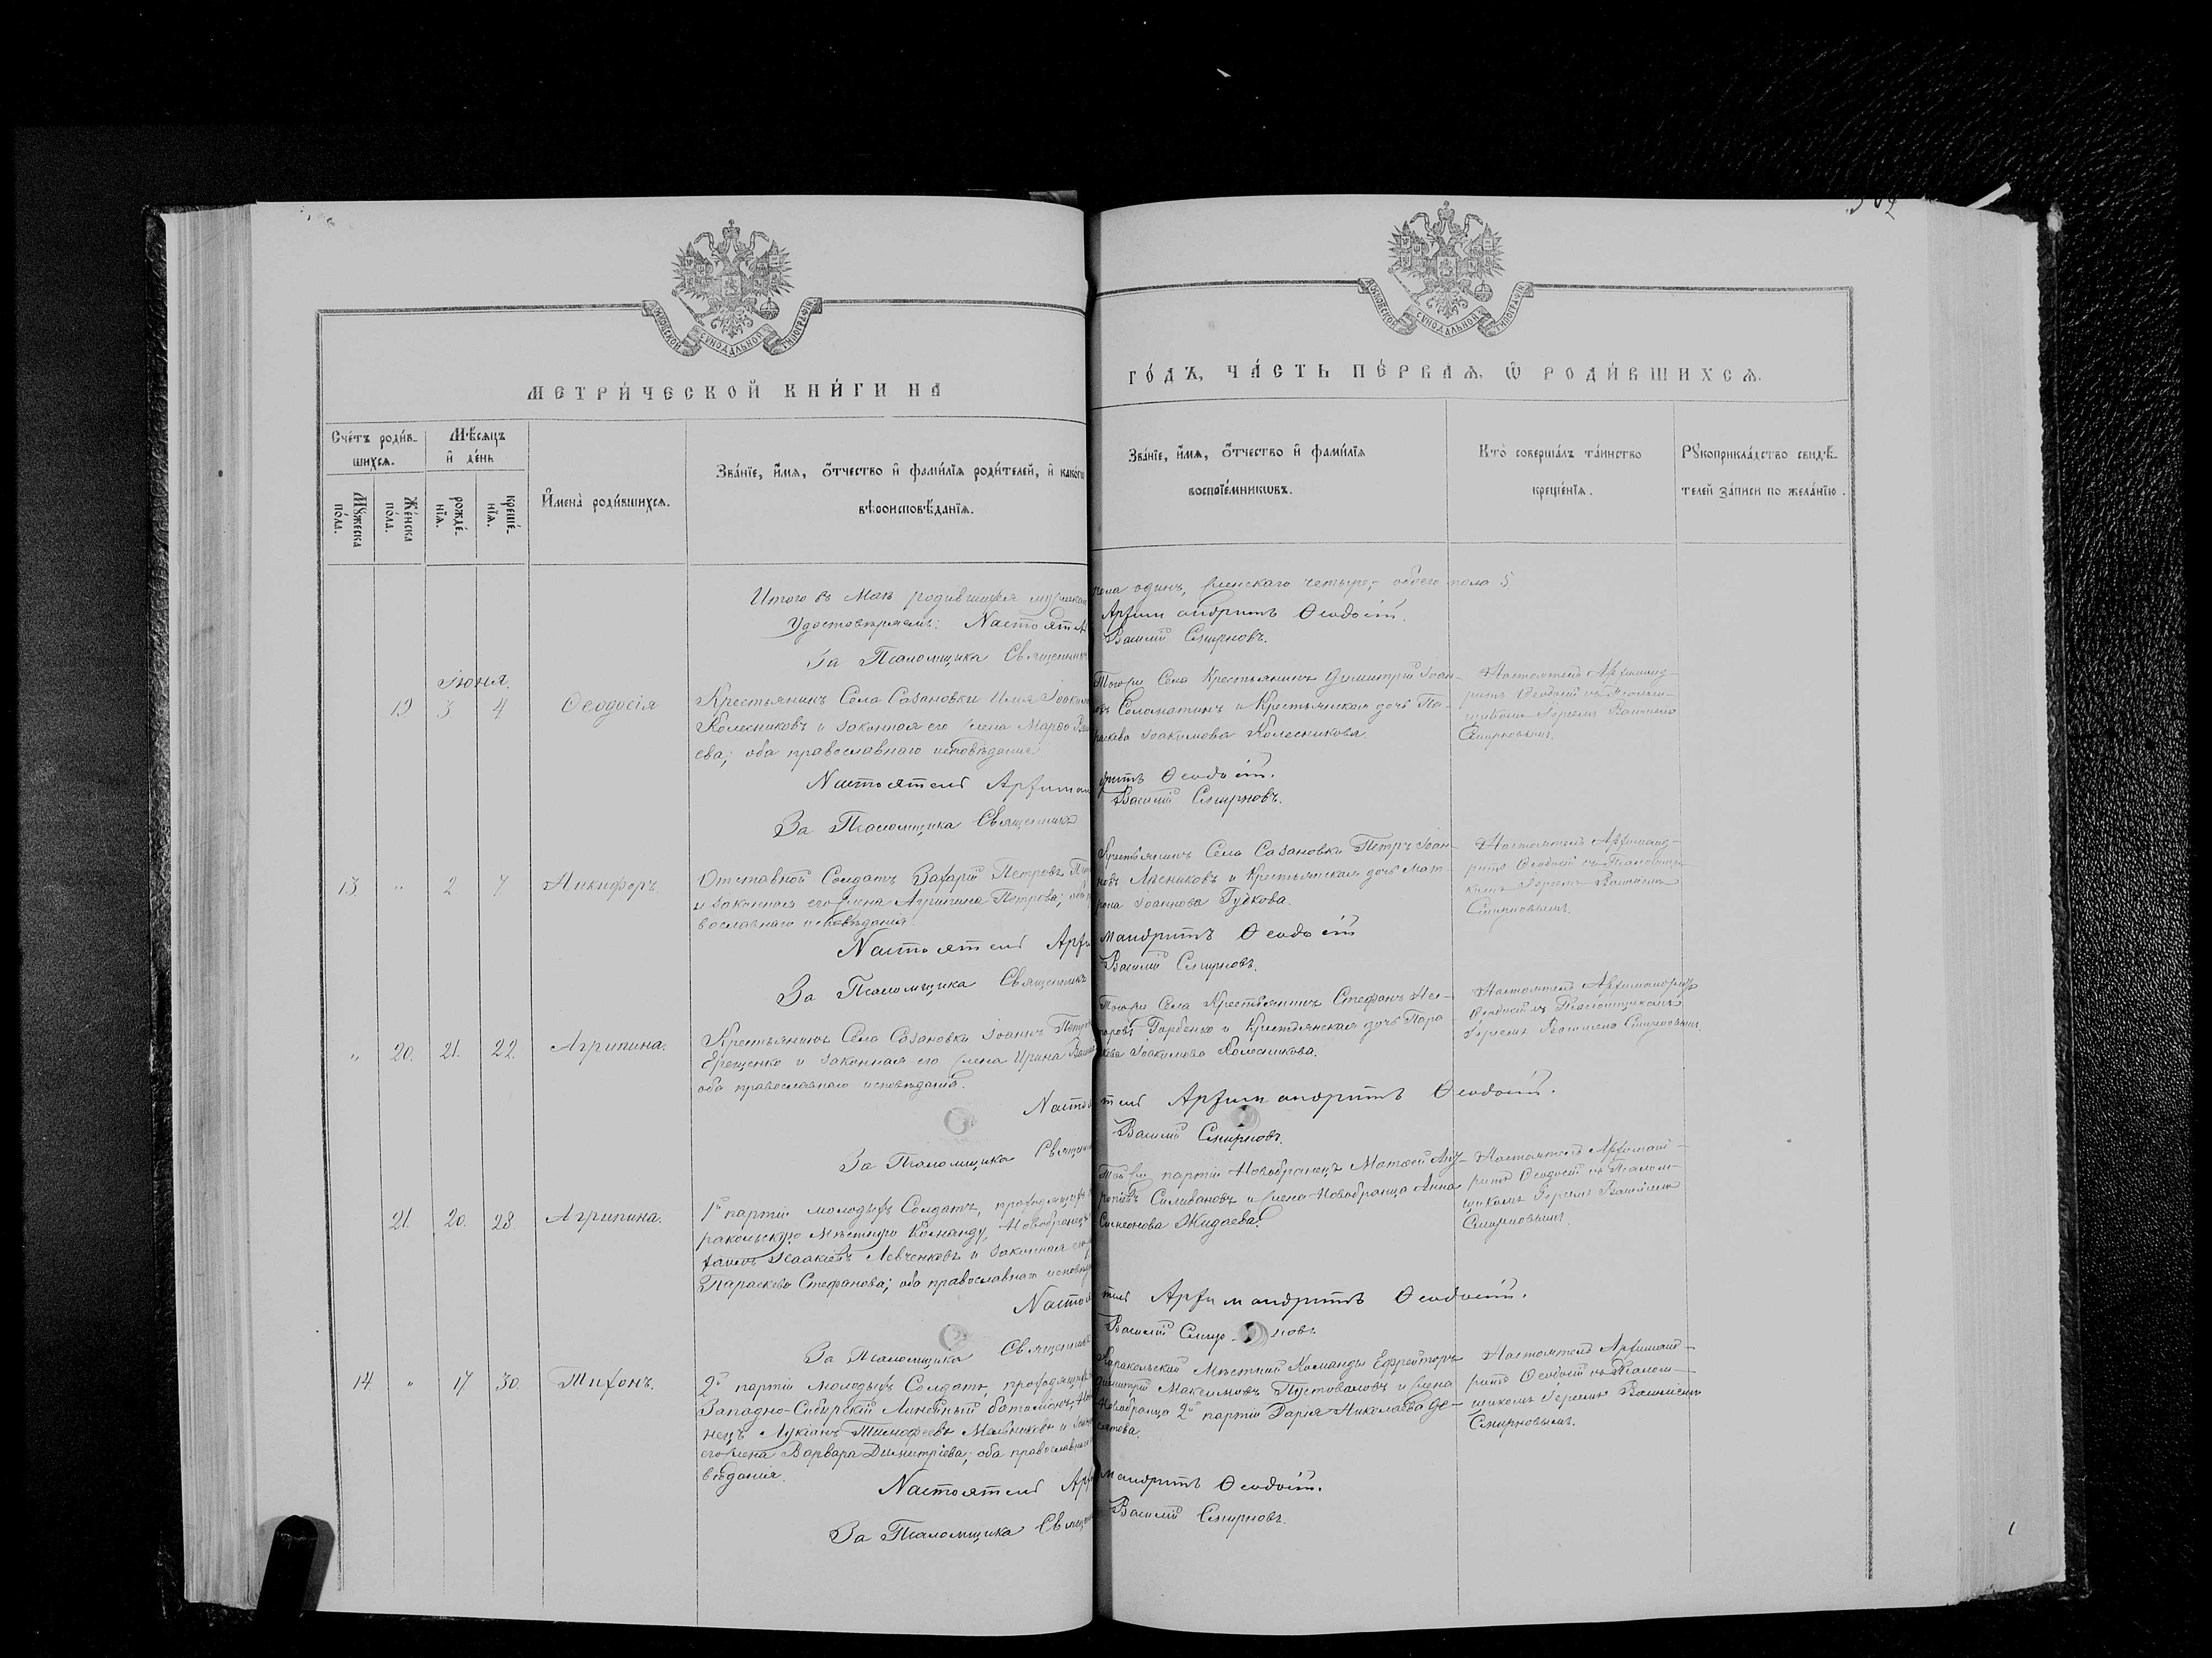 502
МОСКОВСКОЙ СѴНОДАЛЬНОЙ ТИПОГРАФІИ
МОСКОВСКОЙ СѴНОДАЛЬНОЙ ТИПОГРАФІИ
МЕТРИ́ЧЕСКОЙ КНИ́ГИ НА
ГО́ДЪ, ЧА́СТЬ ПЕ́РВАѦ, Ѽ РОДИ́ВШИХСѦ.
Сче́тъ роди́в-
шихсѧ.
Мѣ́сѧцъ
и҆ де́нь
Мꙋ́жеска
по́ла.
Же́нска
по́ла.
рожде́-
нїѧ.
креще́-
нїѧ.
И҆мена̀ роди́вшихсѧ.
Зва́нїе, и҆́мѧ, ѻ҆́тчество и҆ фами́лїѧ роди́телей, и҆ како́гѡ
вѣроисповѣ́данїѧ.
Зва́нїе, и҆́мѧ, ѻ҆́тчество и҆ фами́лїѧ
воспрїе́мникѡвъ.
Кто̀ соверша́лъ та́инство
креще́нїѧ.
Рꙋкоприкла́дство свидѣ́-
телей за́писи по жела́нїю.
Итого въ Маѣ родившихся мужскаго
пола одинъ, женскаго четыре, обоего пола 5
Удостовѣряемъ: Настоятель
Архимандритъ Ѳеодосій.
За Псаломщика Священникъ
Василій Смирновъ.
Іюня.
19 3 4 Ѳеодосія
Крестьянинъ Села Сазановки Илья Іоакимовъ
Колесниковъ и законная его жена Марѳа
ева; оба православнаго исповѣданія
Того же Села Крестьянинъ Димитрій Іоан-
овъ Соломатинъ и Крестьянская дочь Па-
раскева Іоакимова Колесникова
Настоятель Архиманд-
ритъ Ѳеодосій съ Псалом-
щикомъ Іереемъ Василіемъ
Смирновымъ.
Настоятель Архиман
дритъ Ѳеодосій.
За Псаломщика Священникъ
Василій Смирновъ.
13. " 2 7 Никифоръ.
Отставной Солдатъ Захарій Петровъ
и законная его жена Агрипина Петрова;
вославнаго исповѣданія
Крестьянинъ Села Сазановки Петръ Іоан-
новъ Лѣсниковъ и Крестьянская дочь Мат-
рона Іоаннова Гудкова.
Настоятель Архиманд-
ритъ Ѳеодосій съ Псаломщи-
комъ Іереемъ Василіемъ
Смирновымъ.
Настоятель Архи
мандритъ Ѳеодосій
За Псаломщика Священникъ
Василій Смирновъ.
" 20. 21. 22. Агрипина.
Крестьянинъ Села Сазановки Іоаннъ Петровъ
Ерещенко и законная его жена Ирина
оба православнаго исповѣданія.
Того же Села Крестьянинъ Стефанъ Нес-
торовъ Горбенко и Крестьянская дочь Пара
кева Іоакимова Колесникова.
Настоятель Архимандритъ
Ѳеодосій съ Псаломщикомъ
Іереемъ Василіемъ Смирновымъ.
Настоя
тель Архимандритъ Ѳеодосій.
За Псаломщика Священникъ
Василій Смирновъ.
21. 20. 28. Агрипина.
1й партіи молодыхъ Солдатъ, проходящихъ
ракольскую Мѣстную Команду, Новобранецъ
Исаакіевъ Левченковъ и законная его
Параскева Стефанова; оба православнаго исповѣд
Той же партіи Новобранецъ Матѳей
Силивановъ и жена Новобранца Анна
Симеонова Жидаева
Настоятель Архиманд-
ритъ Ѳеодосій съ Псалом-
щикомъ Іереемъ Василіемъ
Смирновымъ.
Настоя
тель Архимандритъ Ѳеодосій.
За Псаломщика Священникъ
Василій Смирновъ
14. " 17 30. Тихонъ.
2й партіи молодыхъ Солдатъ, проходящихъ
Западно-Сибирскій Линейный баталіонъ,
нецъ Лукіанъ Тимофеевъ Мельниковъ и
его жена Варвара Димитріева; оба православнаго
вѣданія.
Каракольской Мѣстной Команды Ефрейторъ
Димитрій Максимовъ Пустоваловъ и жена
Новобранца 2й партіи Дарія Николаева Де-
сятова.
Настоятель Архиманд-
ритъ Ѳеодосій съ Псалом-
щикомъ Іереемъ Василіемъ
Смирновымъ.
Настоятель Архи
мандритъ Ѳеодосій.
За Псаломщика Священ
Василій Смирновъ.